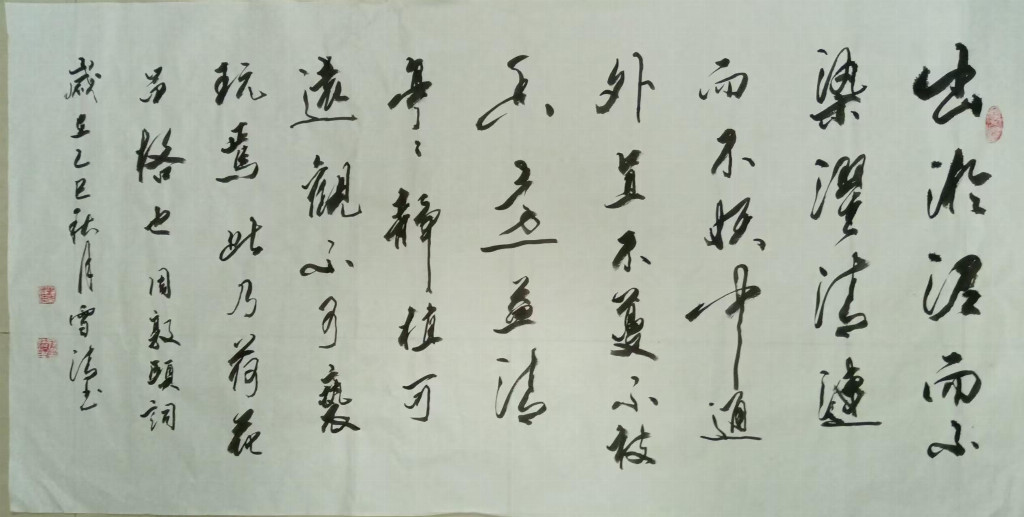 出淤泥而不
染濯清漣
而不妖中通
外直不蔓不枝
香遠益清
亭亭靜植可
遠觀不可褻
玩焉此乃荷花
品格也周敦頤詞
歲在乙巳秋月雪清书